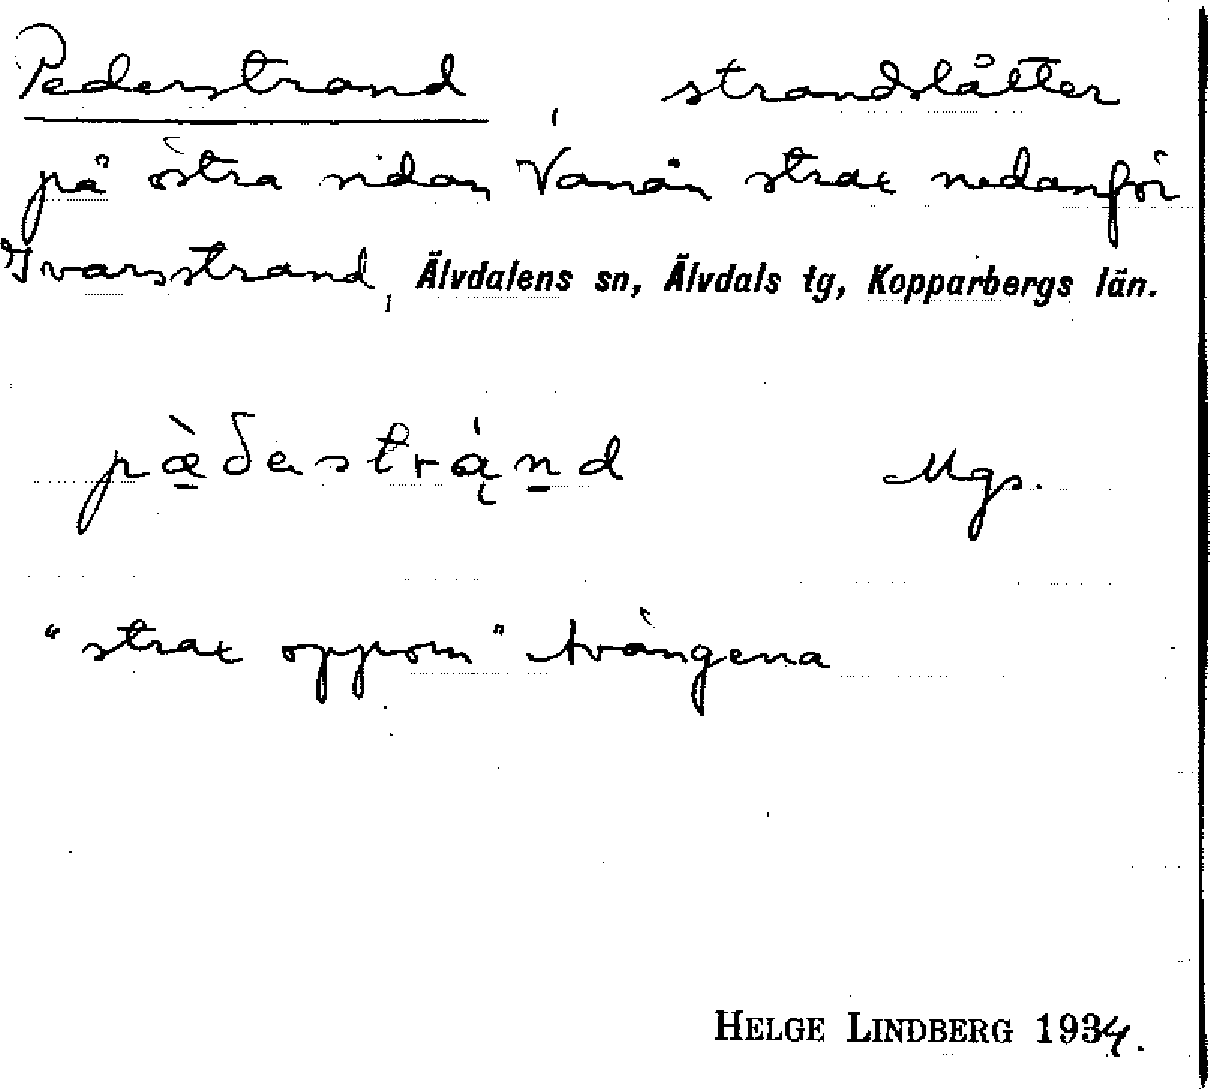 Pederstrand, strandslåtter
på östra sidan Vanån strax nedanför
Ivarsstrand, Älvdalens sn, Älvdals tg, Kopparbergs län.
Mgs.
"strax oppom" Avångena
HELGE LINDBERG 1934.